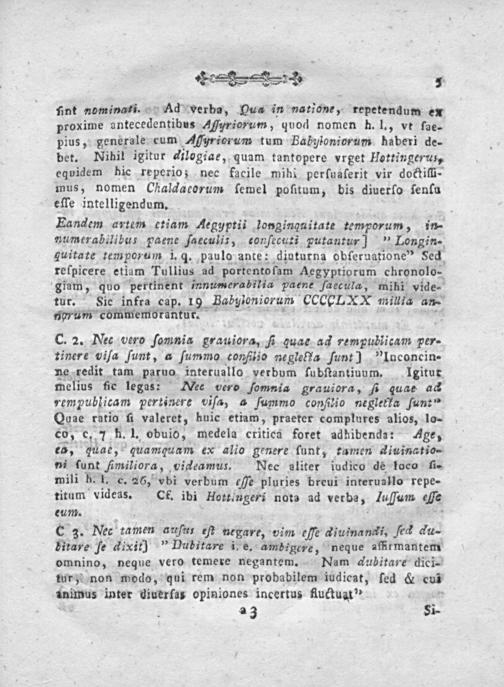 5
ſint nominati. Ad verba, Qua in natione, repetendum ex
proxime antecedentibus Aſſyriorum, quod nomen h. l., vt ſae-
pius, generale cum Aſſyriorum tum Babyloniorum haberi de-
bet. Nihil igitur dilogiae, quam tantopere vrget Hottingerus,
equidem hic reperio; nec facile mihi perſuaſerit vir doctiſſi-
mus, nomen Chaldaeorum ſemel poſitum, bis diuerſo ſenſu
eſſe intelligendum.
Eandem artem etiam Aegyptii longinquitate temporum, in-
numerabilibus paene ſaeculis, conſecuti putantur] "Longin-
quitate temporum i. q. paulo ante: diuturna obſeruatione" Sed
reſpicere etiam Tullius ad portentoſam Aegyptiorum chronolo-
giam, quo pertinent innumerabilia paene ſaecula, mihi vide-
tur. Sic infra cap. 19 Babyloniorum CCCCLXX millia an-
norum commemorantur.
C. 2. Nec vero ſomnia grauiora, ſi quae ad rempublicam per-
tinere viſa ſunt, a ſummo conſilio neglecta ſunt] "Inconcin-
ne redit tam paruo interuallo verbum ſubſtantiuum. Igitur
melius ſic legas: Nec vero ſomnia grauiora, ſi quae ad
rempublicam pertinere viſa, a ſummo conſilio neglecta ſunt"
Quae ratio ſi valeret, huic etiam, praeter complures alios, lo-
co, c. 7 h. l. obuio, medela critica foret adhibenda: Age,
ea, quae, quamquam ex alio genere ſunt, tamen diuinatio-
ni ſunt ſimiliora, videamus. Nec aliter iudico de loco ſi-
mili h. l. c. 26, vbi verbum eſſe pluries breui interuallo repe-
titum videas. Cf. ibi Hottingeri nota ad verba, Iuſſum eſſe
eum.
C 3. Nec tamen auſus eſt negare, vim eſſe diuinandi, ſed du-
bitare ſe dixit] "Dubitare i. e. ambigere, neque affirmantem
omnino, neque vero temere negantem. Nam dubitare dici-
tur, non modo, qui rem non probabilem iudicat, ſed & cui
animus inter diuerſas opiniones incertus fluctuat"
a 3
Si-